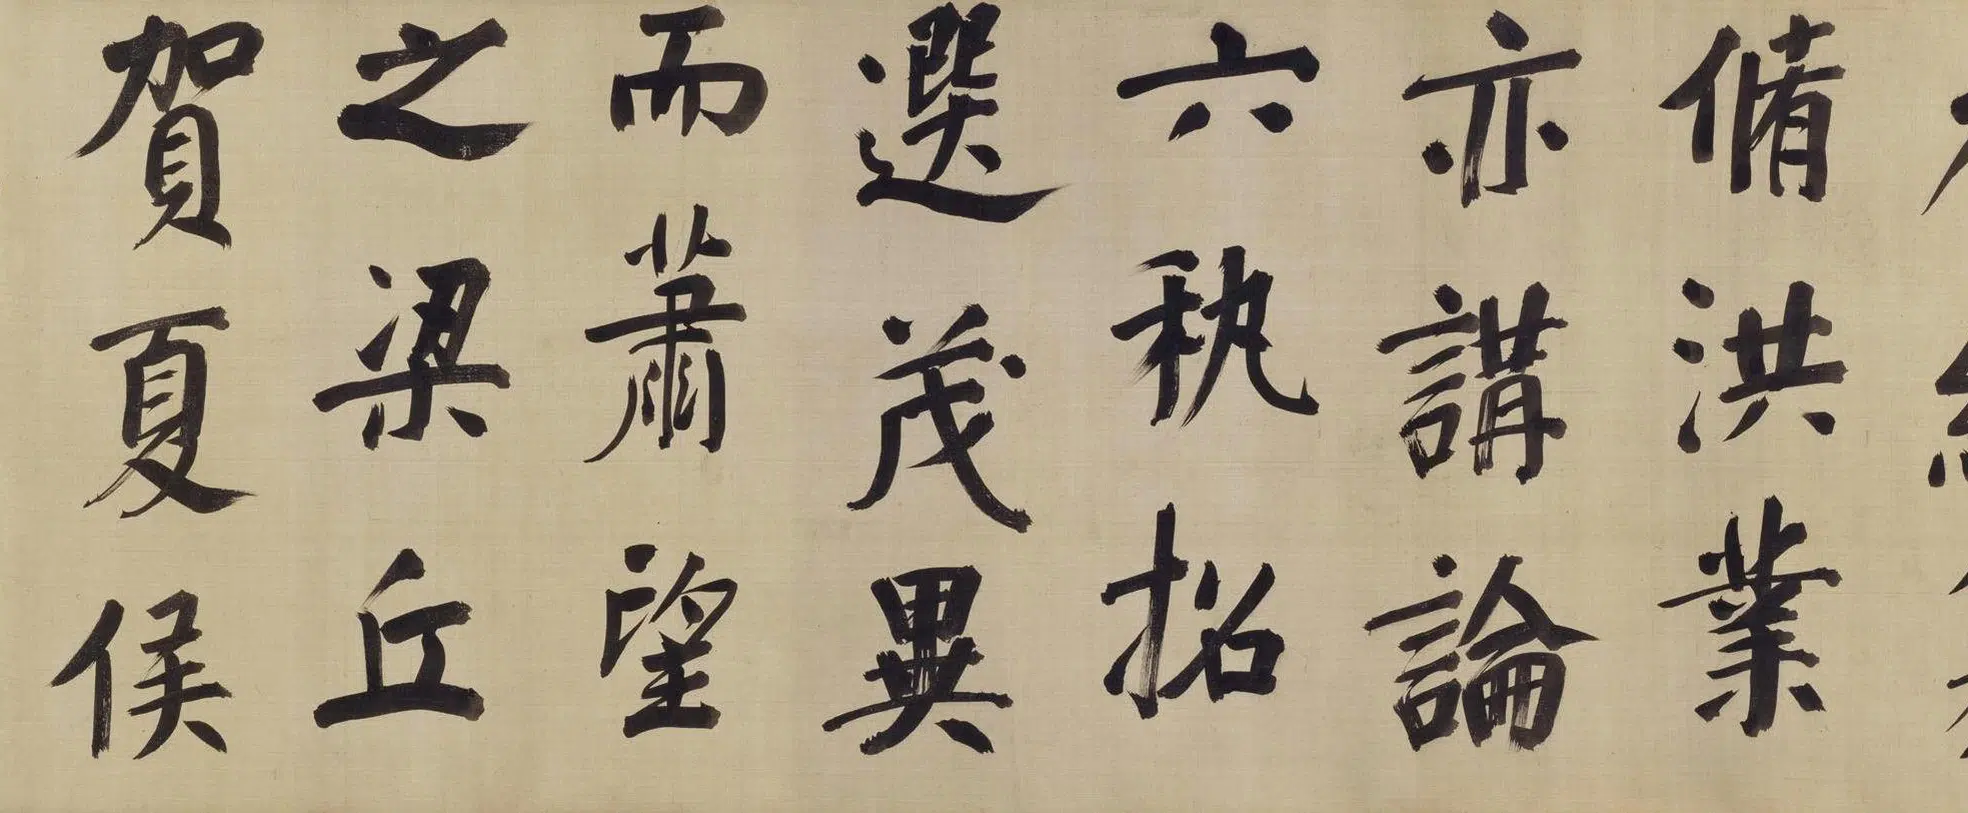 脩洪業
亦講論
六秇招
選茂異
而蕭望
之梁丘
賀夏侯